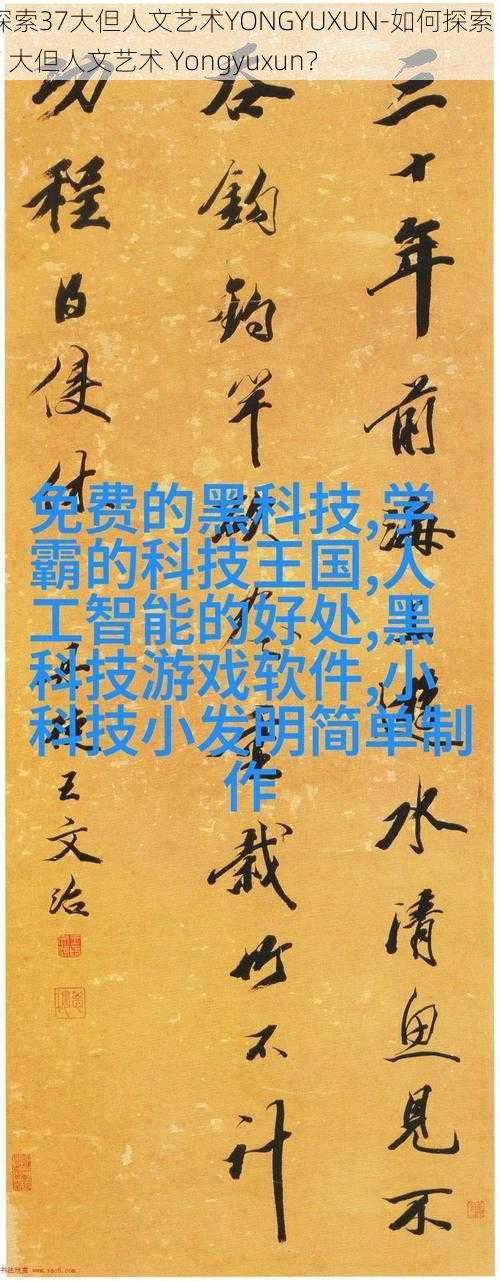 探索37大但人文艺术YONGYUXUN-如何探索
大但人文艺术 Yongyuxun？
三十年前海遊水清鱼见不
吞鈎釣竿重栽竹不計
功程
王文治
免费的黑科技,学
霸的科技王国,人
工智能的好处,黑
科技游戏软件,小
科技小发明简单制
作
书法欣赏 www.yac8.com